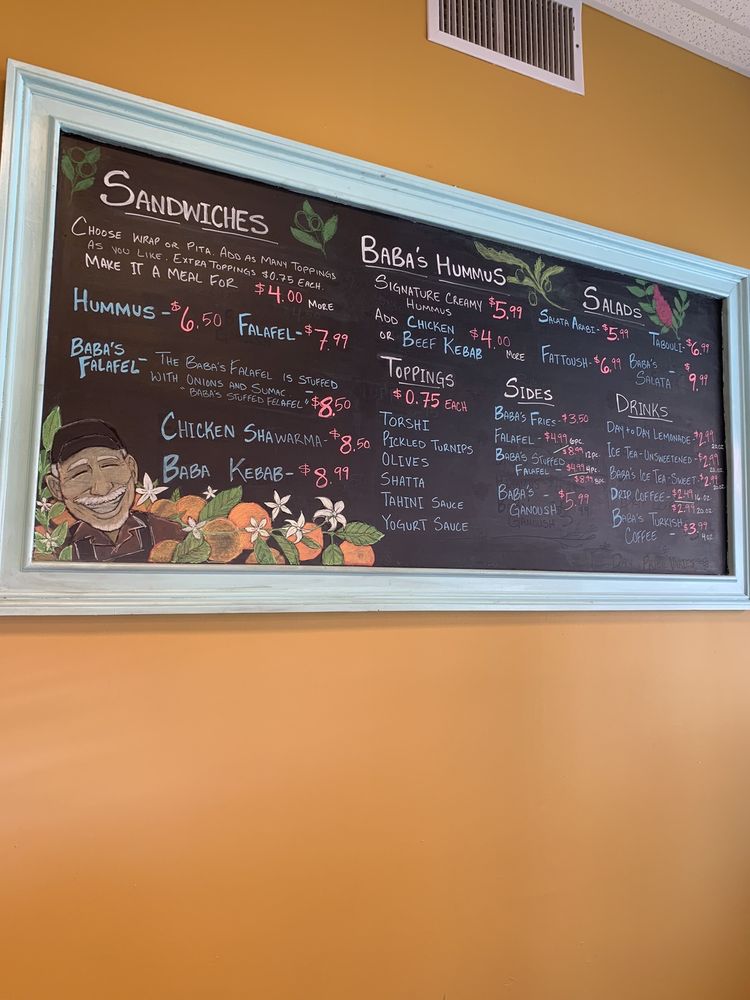 SANDWICHES
CHOOSE WRAP OR PITA. ADD AS MANY TOPPINGS
AS YOU LIKE. EXTRA TOPPINGS $0.75 EACH.
MAKE IT A MEAL FOR $4.00 MORE
HUMMUS - $6.50 FALAFEL - $7.99
BABA'S
FALAFEL - THE BABA'S FALAFEL IS STUFFED
WITH ONIONS AND SUMAC.
"BABA'S STUFFED FELAFEL" $8.50
CHICKEN SHAWARMA - $8.50
BABA KEBAB - $8.99
BABA'S HUMMUS
SIGNATURE CREAMY $5.99
HUMMUS
ADD CHICKEN $4.00
OR BEEF KEBAB MORE
TOPPINGS
$0.75 EACH
TORSHI
PICKLED TURNIPS
OLIVES
SHATTA
TAHINI SAUCE
YOGURT SAUCE
SIDES
BABA'S FRIES - $3.50
FALAFEL - $4.99 6pc.
$8.99 12pc.
BABA'S STUFFED
FALAFEL $4.99 4pc.
$8.99 8pc.
BABA'S - $5.99
GANOUSH
SALADS
SALATA ARABI - $5.99
TABOULI - $6.99
FATTOUSH - $6.99
BABA'S - $9.99
SALATA
DRINKS
DAY TO DAY LEMONADE - $2.99 20oz
ICE TEA - UNSWEETENED - $2.99 20oz
BABA'S ICE TEA - SWEET - $2.99 20oz
DRIP COFFEE - $2.49 16oz
$2.99 20oz
BABA'S TURKISH
COFFEE - $3.99 4oz